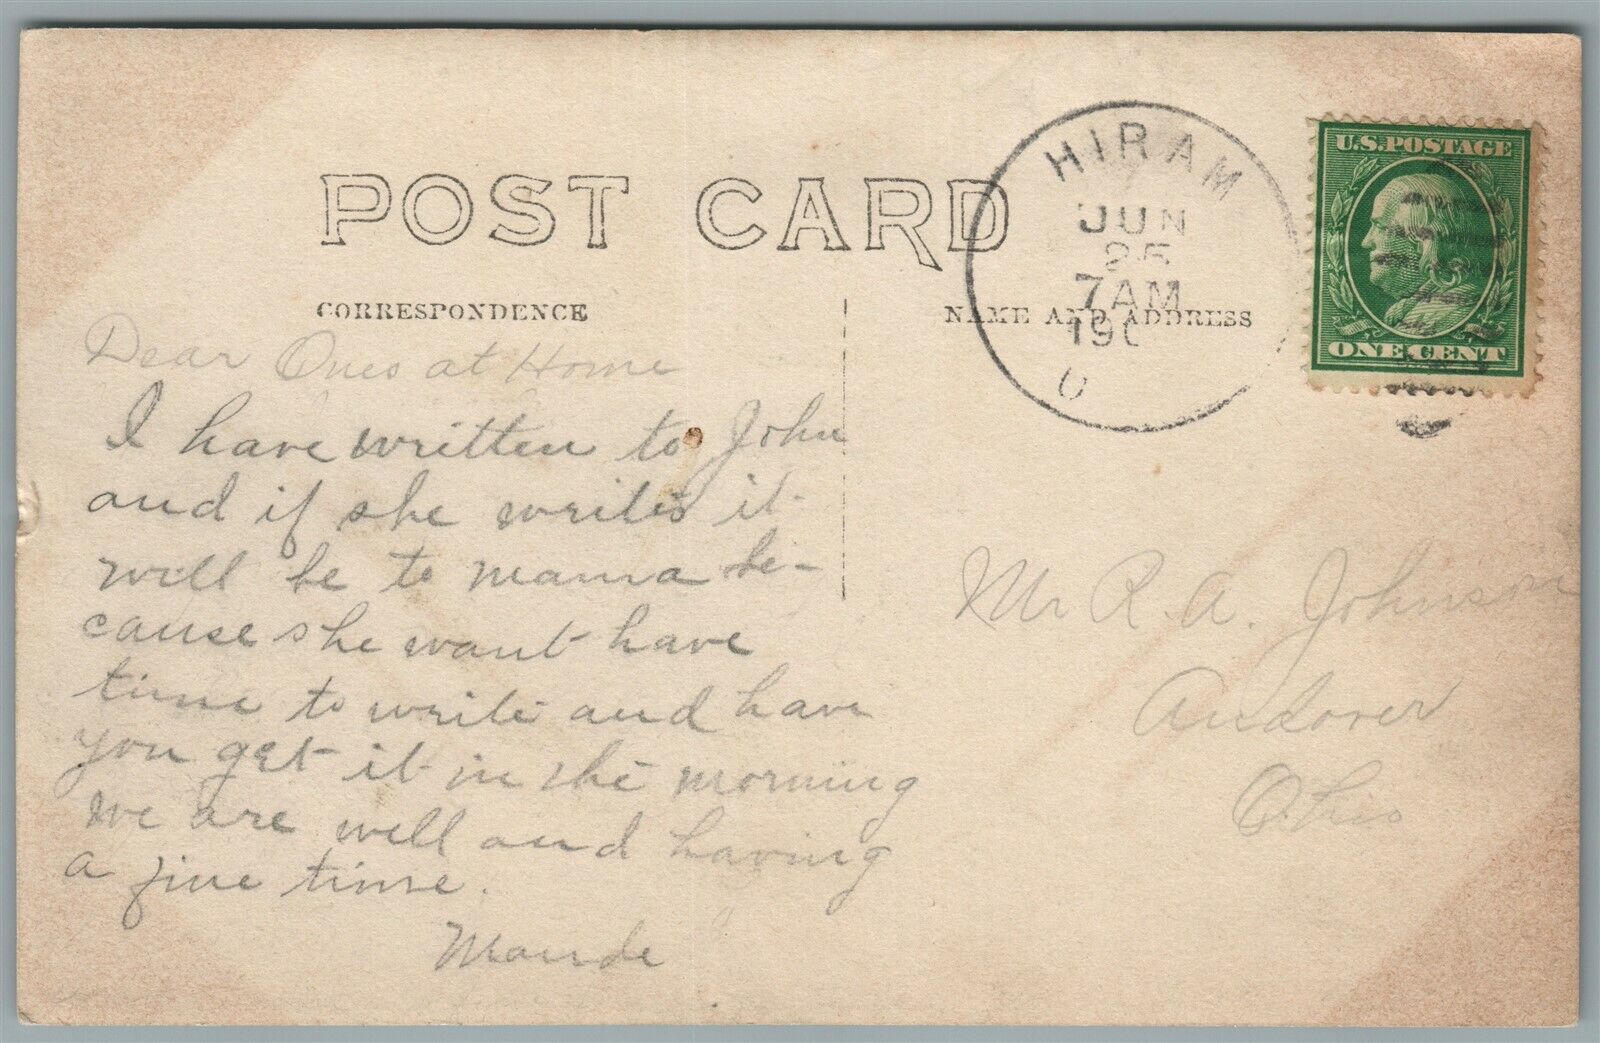 POST CARD
CORRESPONDENCE
NAME AND ADDRESS
HIRAM
JUN
25
7AM
190
O
U.S. POSTAGE
ONE CENT
Dear Ones at Home
I have written to John
and if she writes it
will be to mama be-
cause she want have
time to write and have
you get it in the morning
we are well and having
a fine time.
Maude
Mr R. A. Johnson
Andover
Ohio